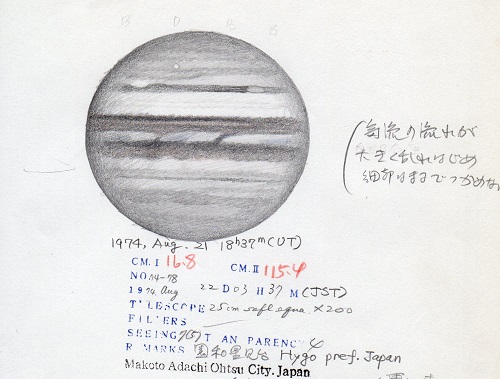 気流の流れが
大きく乱れはじめ
細部はまでつかめな
1974, Aug. 21 18h37m(UT)
CM.I 16.8 CM.II 115.4
NO 14-78
1974 Aug 22 D 03 H 37 M (JST)
TELESCOPE 25cm refl equa. ×200
FILTERS
SEEING 7(5) T AN PARENCY 4
R MARKS Hygo pref. Japan
Makoto Adachi Ohtsu City. Japan